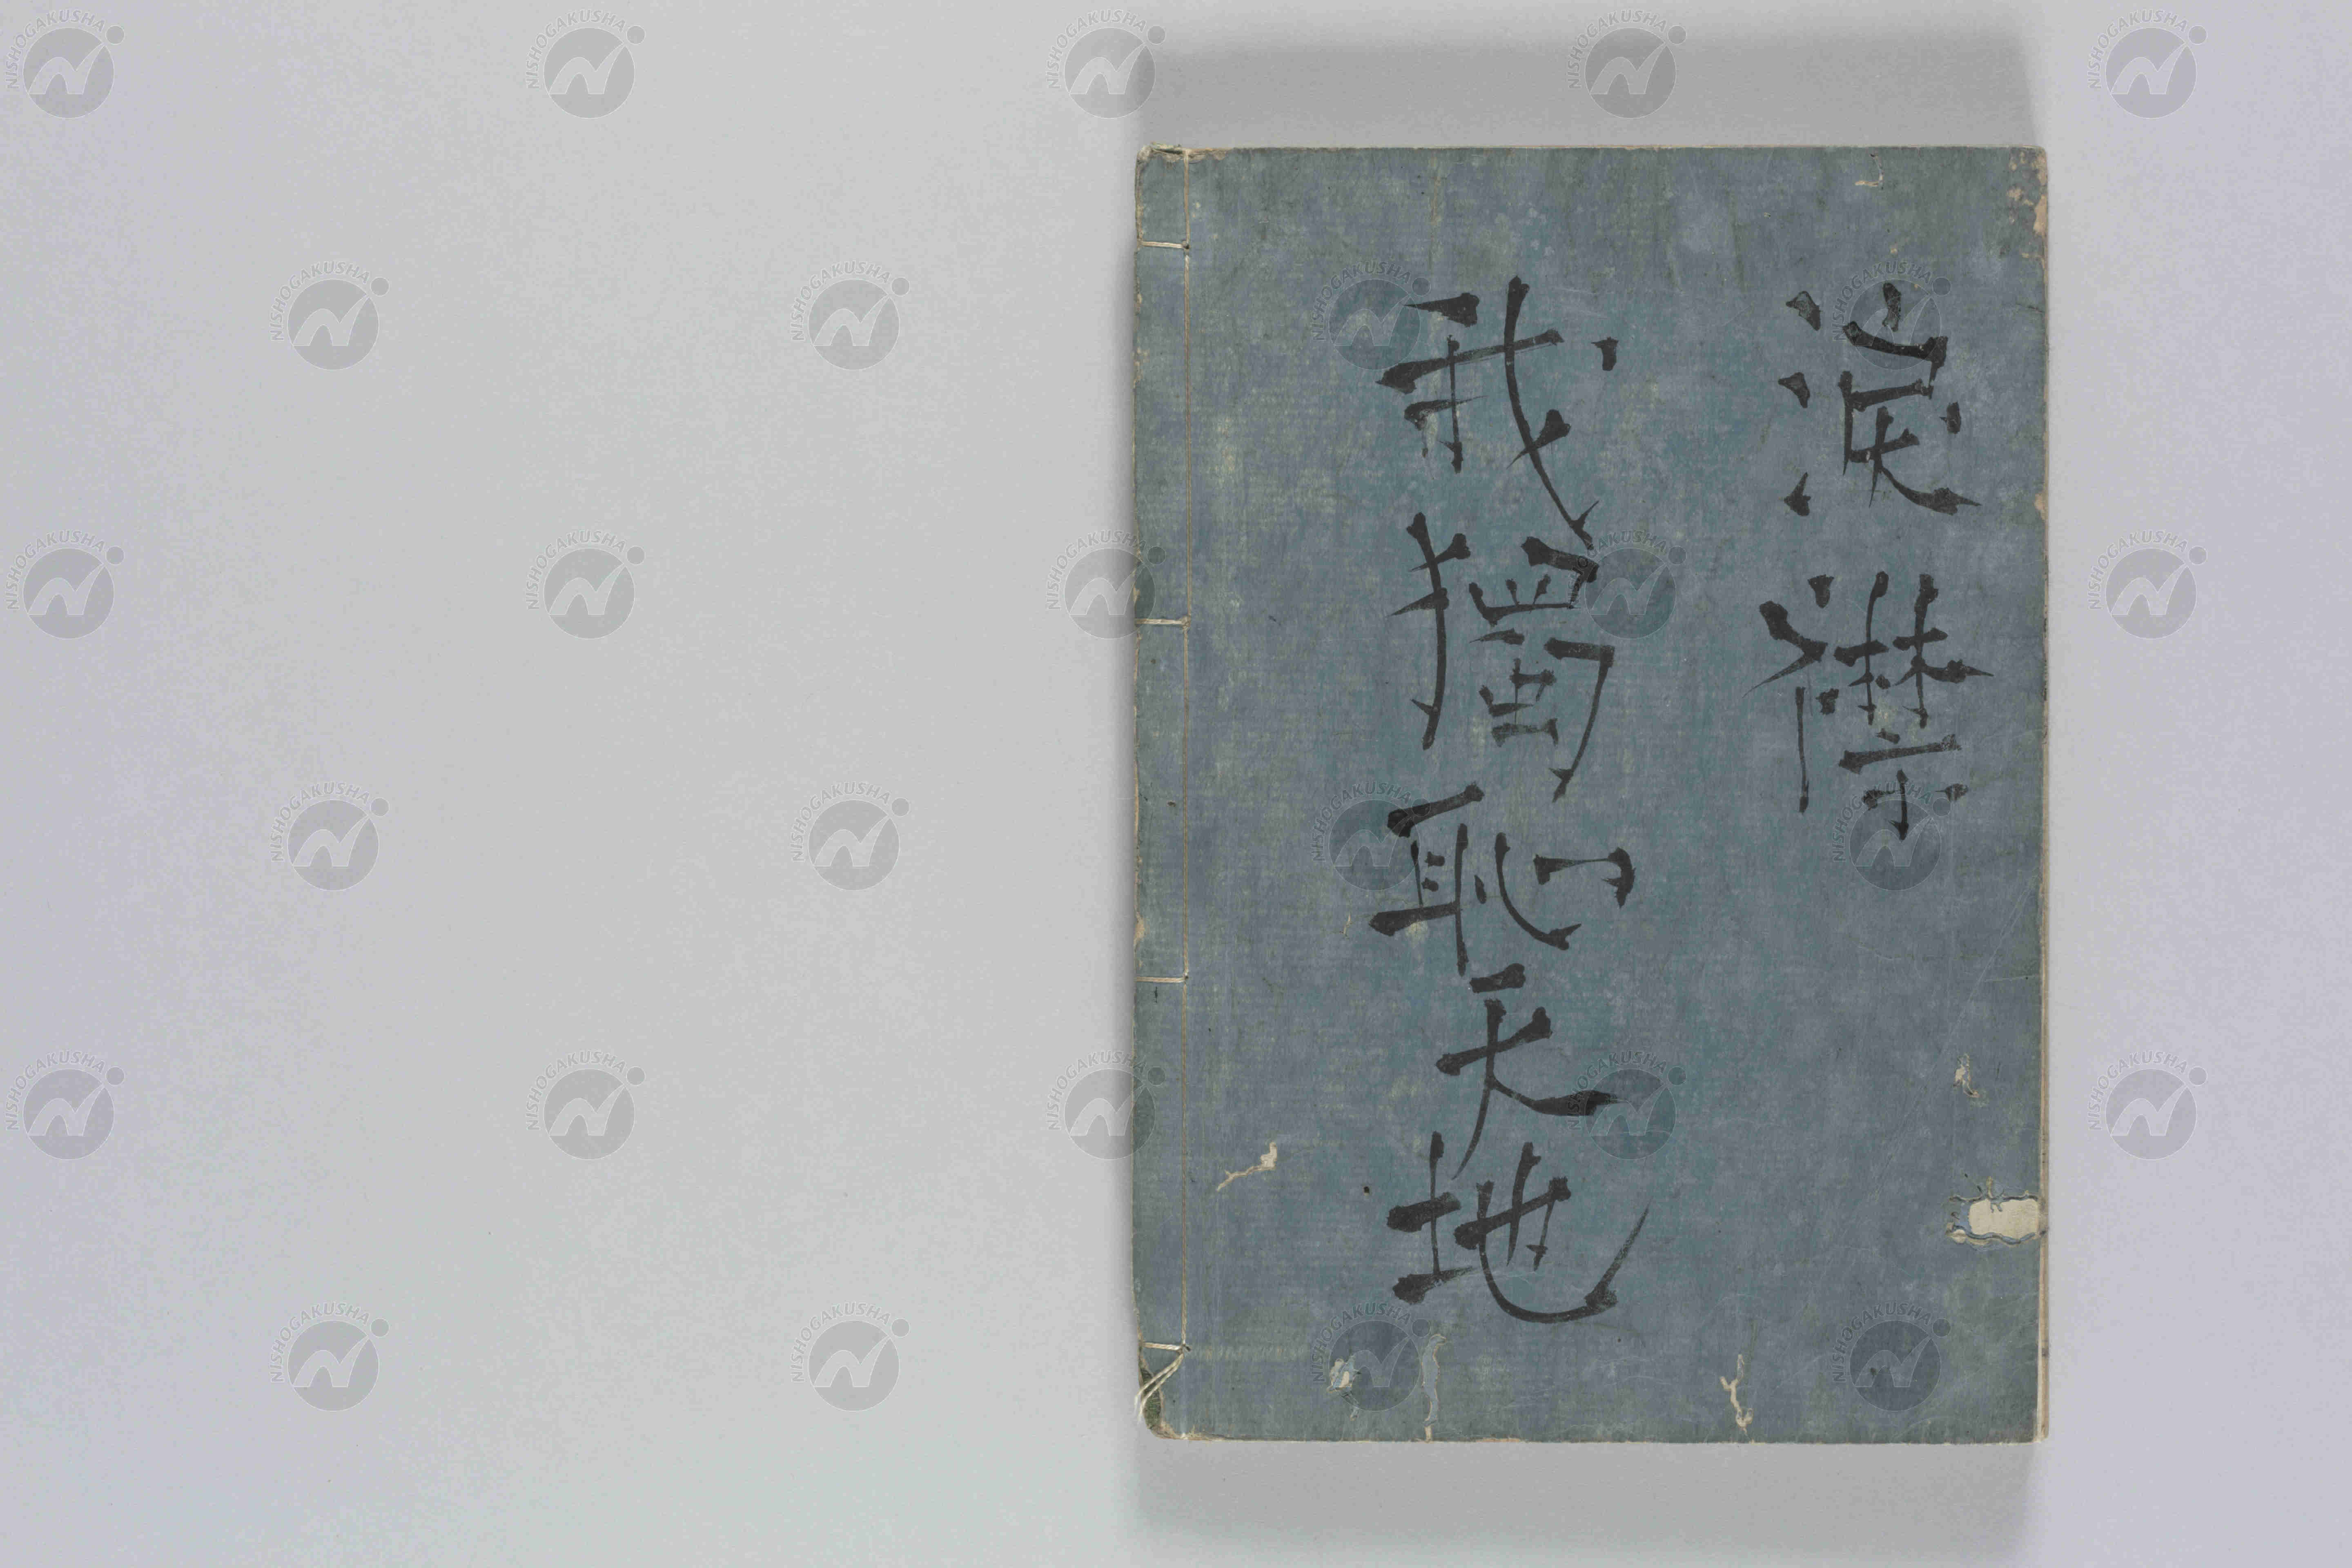 涙襟
我獨恥天地
NISHOGAKUSHA